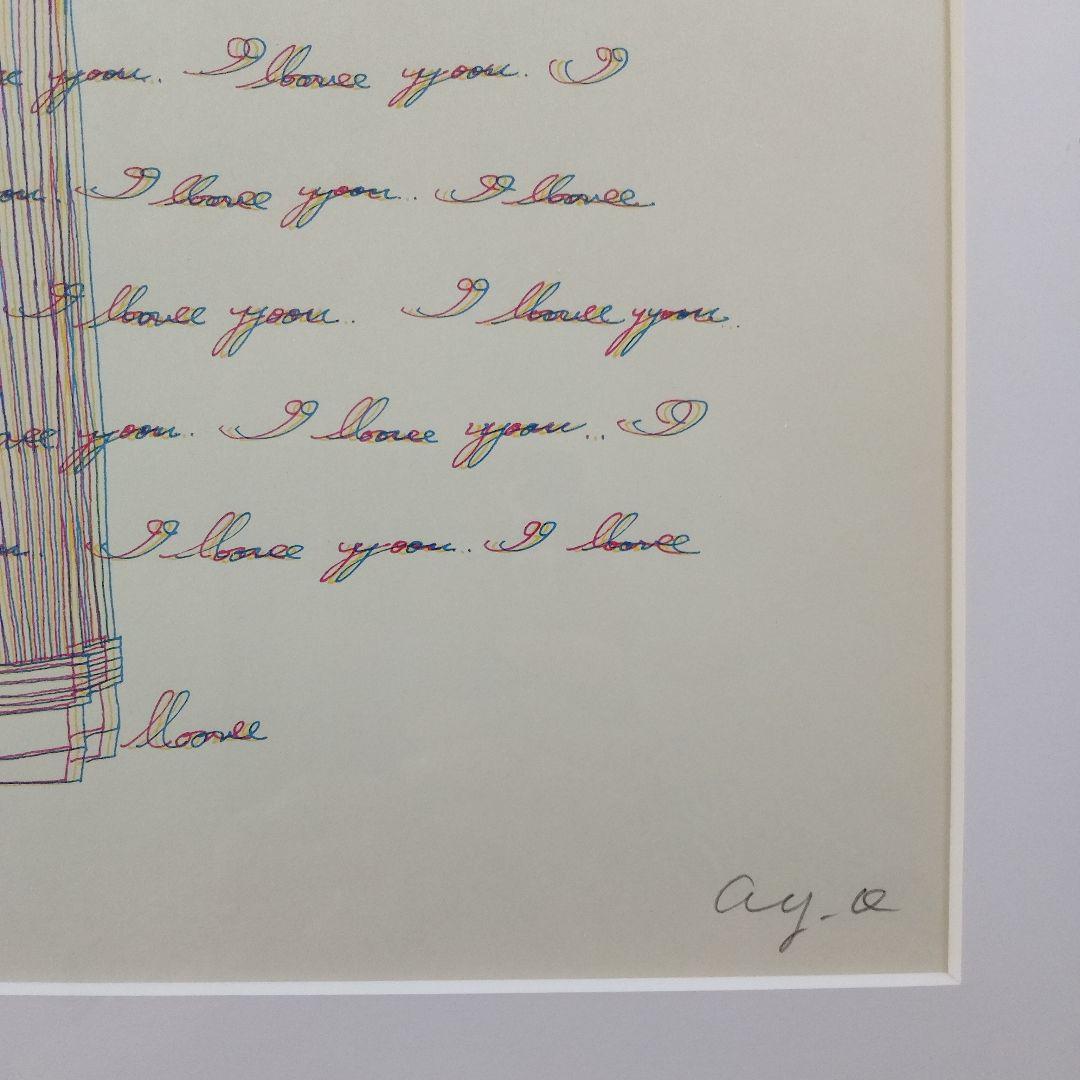 you. I love you. I
I love you.. I love.
I love you. I love you.
love you. I love you.. I
I love you.. I love
love
ay-o